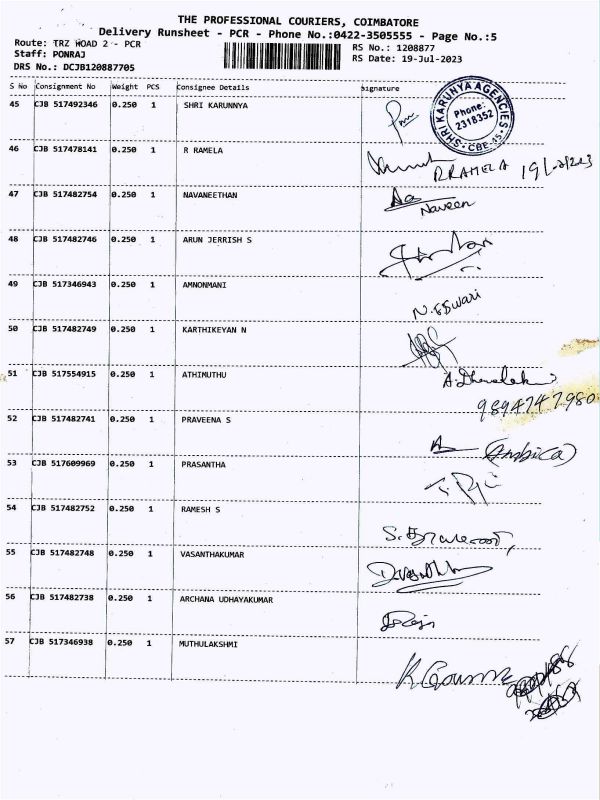 THE PROFESSIONAL COURIERS, COIMBATORE
Delivery Runsheet - PCR - Phone No.:0422-3505555 - Page No.:5
Route: TRZ ROAD 2 - PCR
RS No.: 1208877
Staff: PONRAJ
RS Date: 19-Jul-2023
DRS No.: DCJB120887705
S No Consignment No Weight PCS Consignee Details Signature
45 CJB 517492346 0.250 1 SHRI KARUNNYA
SHRI KARUNYA AGENCIES
Phone:
2318352
CBE-45
46 CJB 517478141 0.250 1 R RAMELA
R RAMELA
47 CJB 517482754 0.250 1 NAVANEETHAN
Naveen
48 CJB 517482746 0.250 1 ARUN JERRISH S
49 CJB 517346943 0.250 1 AMNONMANI
N. Eswari
50 CJB 517482749 0.250 1 KARTHIKEYAN N
51 CJB 517554915 1 0.250 1 ATHIMUTHU
9894747980
52 CJB 517482741 0.250 1 PRAVEENA S
(Ambica)
53 CJB 517609969 0.250 1 PRASANTHA
54 CJB 517482752 0.250 1 RAMESH S
55 CJB 517482748 0.250 1 VASANTHAKUMAR
56 CJB 517482738 0.250 1 ARCHANA UDHAYAKUMAR
57 CJB 517346938 0.250 1 MUTHULAKSHMI